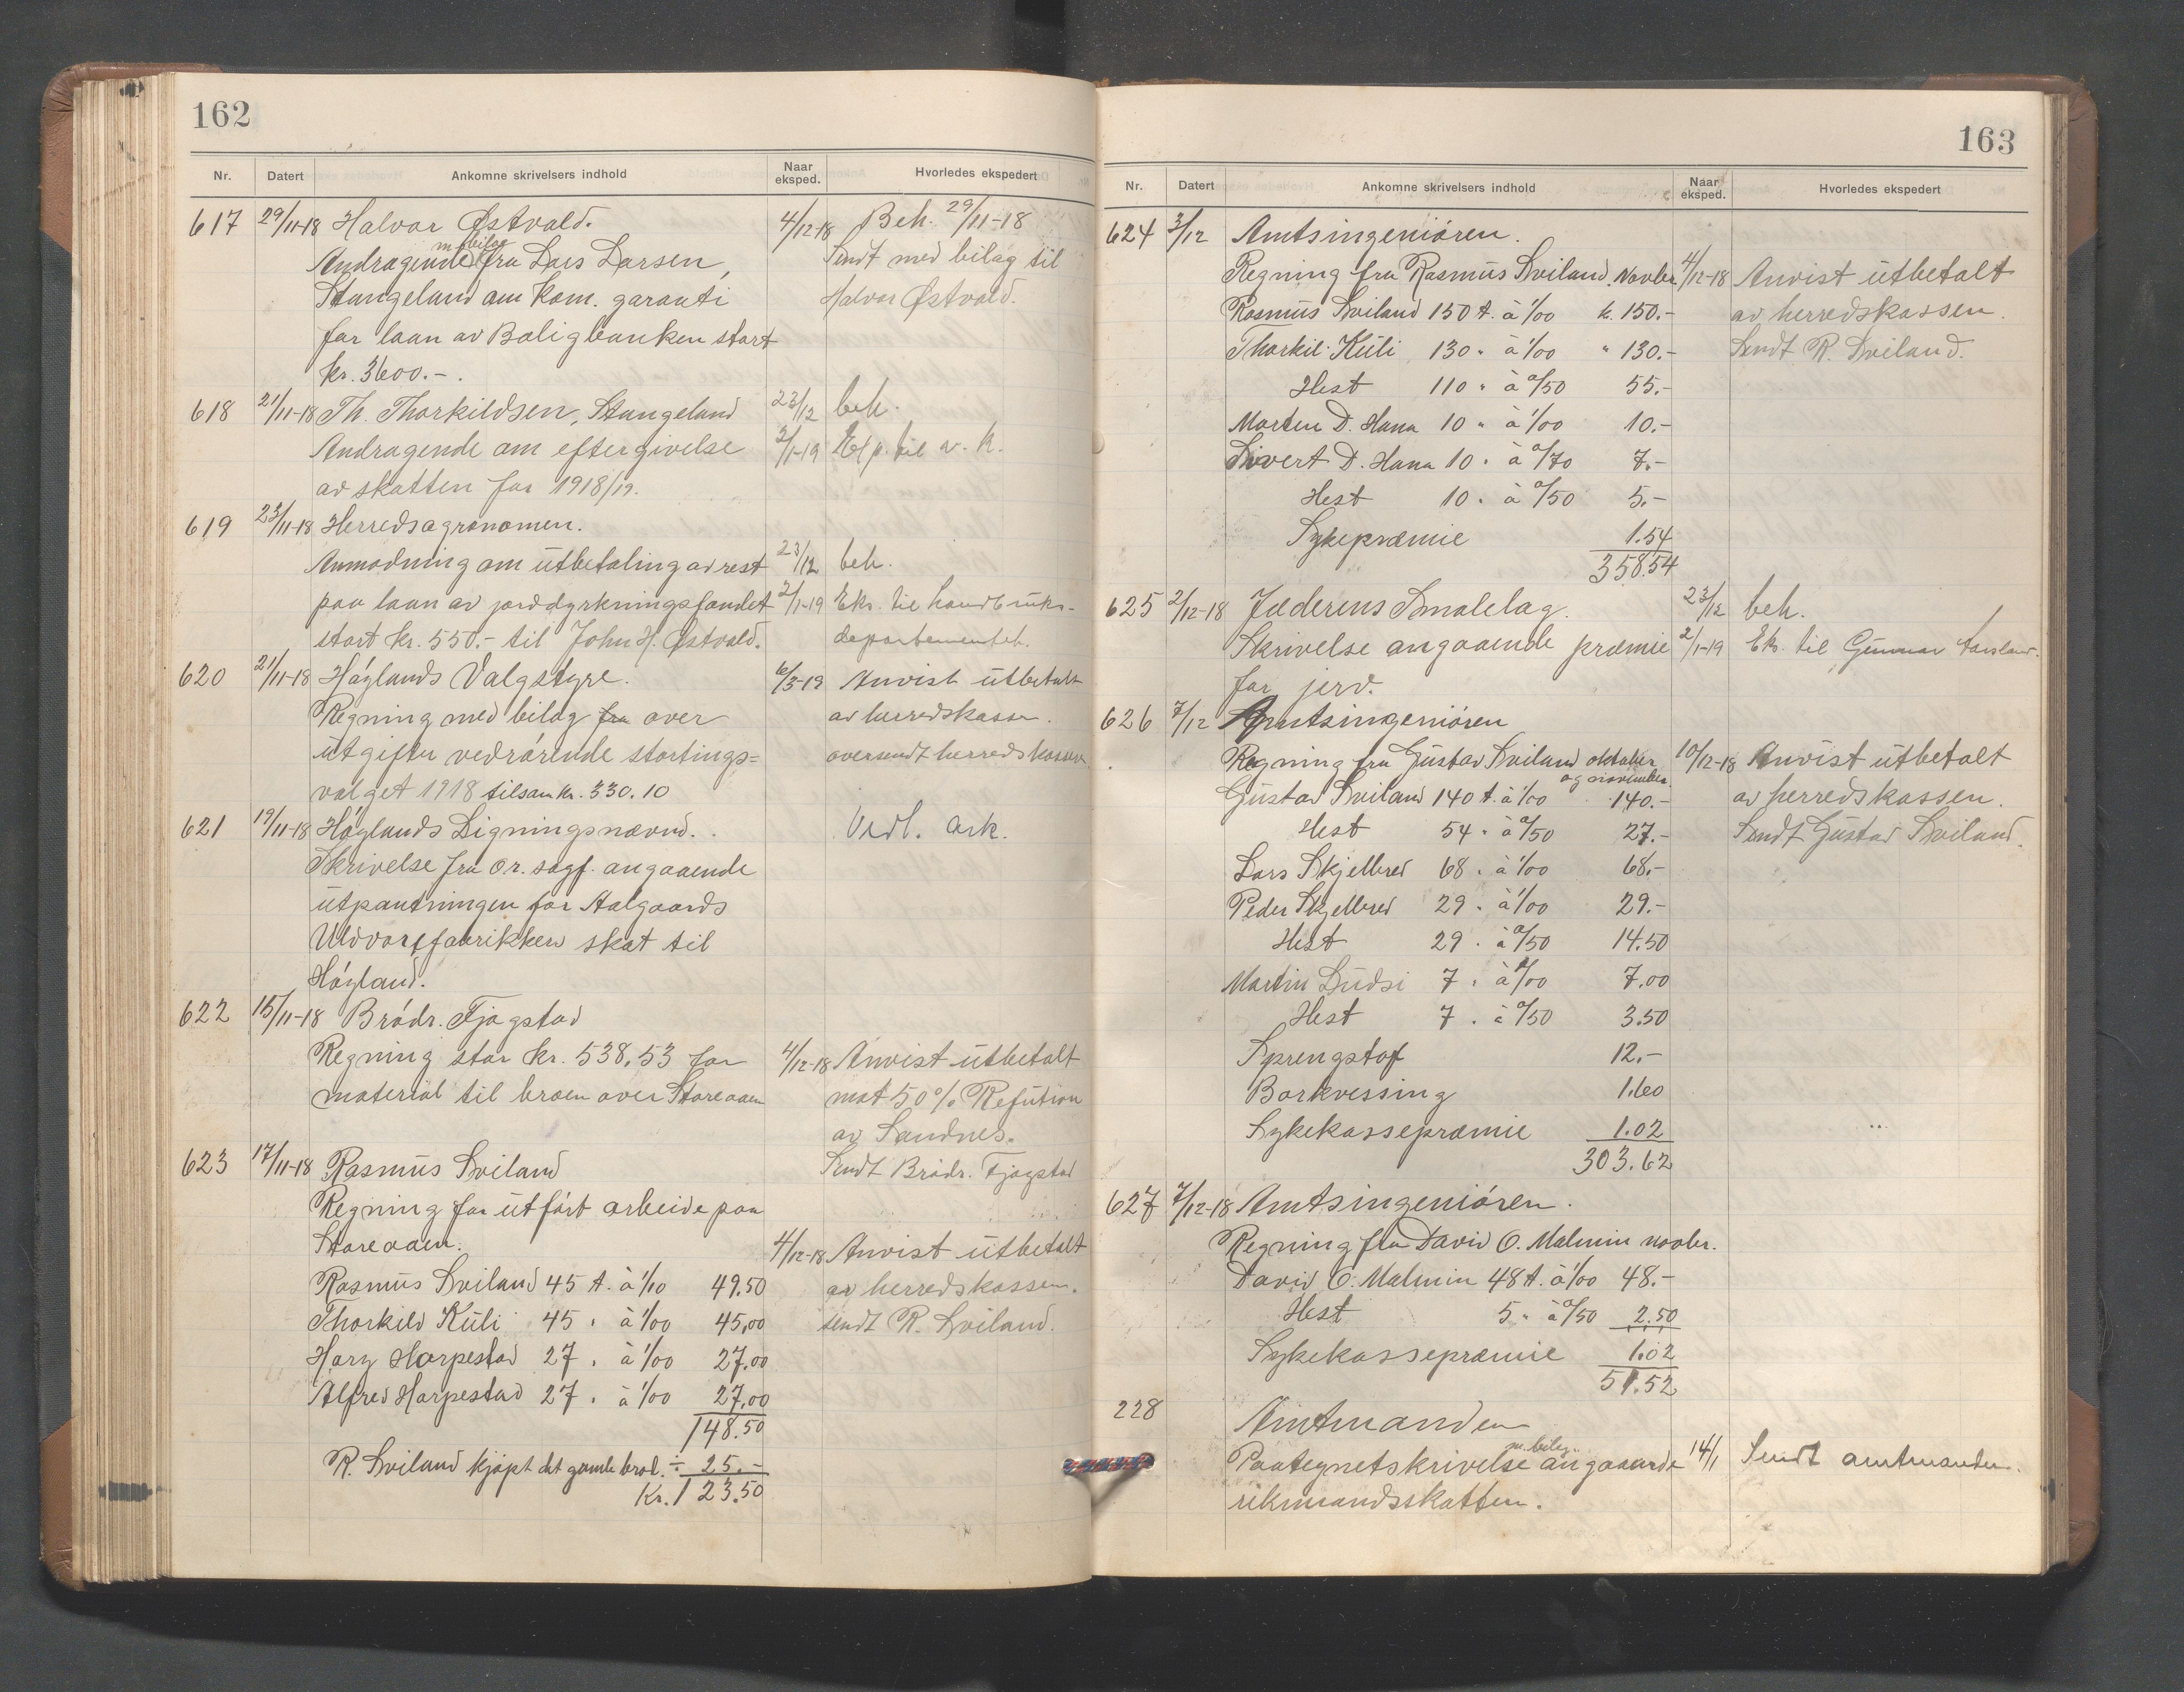 162
Nr. Datert Ankomne skrivelsers indhold Naar eksped. Hvorledes ekspedert
617 29/11-18 Halvor Østvold. 4/12-18 Beh. 29/11-18
m/bilag
Andragende fra Lars Larsen, Sendt med bilag til
Stangeland om Kom. garanti Halvor Østvold.
for laan av Boligbanken stort
kr. 3600.-.
618 21/11-18 Th. Thorkildsen, Stangeland 23/12 beh.
Andragende om eftergivelse 2/1-19 Exp. til v. k.
av skatten for 1918/19.
619 23/11-18 Herredsagronomen.
Anmodning om utbetaling av rest 23/12 beh.
paa laan av jorddyrkningsfondet 2/1-19 Eks. til Landbruks-
stort kr. 550.- til John H. Østvold. departementet.
620 21/11-18 Høylands Valgstyre. 6/3-19 Anvist utbetalt
Regning med bilag fra over av herredskassen.
utgifter vedrørende stortings= oversendt herredskasser
valget 1918 tilsam kr. 330.10
621 19/11-18 Høylands Ligningsnævnd. Vedl. Ark.
Skrivelse fra o.r. sagf. angaaende
utpantningen for Aalgaards
Uldvarefabrikken skat til
Høyland.
622 15/11-18 Brødr. Fjogstad
Regning stor kr. 538,53 for 4/12-18 Anvist utbetalt
material til broen over Storeaaen mot 50% Refution
av Sandnes.
623 17/11-18 Rasmus Sviland Sendt Brødr. Fjogstad
Regning for utført arbeide paa
Storeaaen. 4/12-18 Anvist utbetalt
Rasmus Sviland 45 t. à 1/10 49.50 av herredskassen.
Thorkild Kuli 45 " à 1/00 45,00 sendt R. Sviland.
Harz Harpestad 27 " à 1/00 27.00
Alfred Harpestad 27 " à 1/00 27,00
148.50
R. Sviland kjøpt det gamle brol. ÷ 25.-
Kr. 123.50
163
Nr. Datert Ankomne skrivelsers indhold Naar eksped. Hvorledes ekspedert
624 3/12 Amtsingeniøren.
Regning fra Rasmus Sviland. Novbr. 4/12-18 Anvist utbetalt
Rasmus Sviland 150 t. à 1/00 k. 150.- av herredskassen.
Thorkil Kuli 130 " à 1/00 " 130.- Sendt R. Sviland.
Hest 110 " à 0/50 55.-
Morten D. Hana 10 " à 1/00 10.-
Sivert D. Hana 10 " à 0/70 7.-
Hest 10 " à 0/50 5.-
Sykepræmie 1.54
358.54
625 2/12-18 Jæderens Smalelag. 23/12 beh.
Skrivelse angaaende præmie 2/1-19 Ek. til Gunnar
for jerv.
626 7/12 Amtsingeniøren
Regning fra Gustav Sviland oktober 10/12-18 Anvist utbetalt
og november.
Gustav Sviland 140 t. à 1/00 140.- av herredskassen.
Hest 54 " à 0/50 27.- Sendt Gustav Sviland.
Lars Skjelbred 68 " à 1/00 68.-
Peder Skjelbred 29 " à 1/00 29.-
Hest 29 " à 0/50 14.50
Martin Ludsi 7 " à 1/00 7.00
Hest 7 " à 0/50 3.50
Sprengstof 12.-
Borkvessing 1.60
Sykekassepræmie 1.02
303.62
627 7/12-18 Amtsingeniøren.
Regning fra David O. Malmin novbr.
David O. Malmin 48 t. à 1/00 48.-
Hest 5 " à 0/50 2.50
Sykekassepræmie 1.02
51.52
228 Amtmanden
m. bilag.
Paategnetskrivelse angaaende 14/1 Sendt amtmanden.
rikmandsskatten.